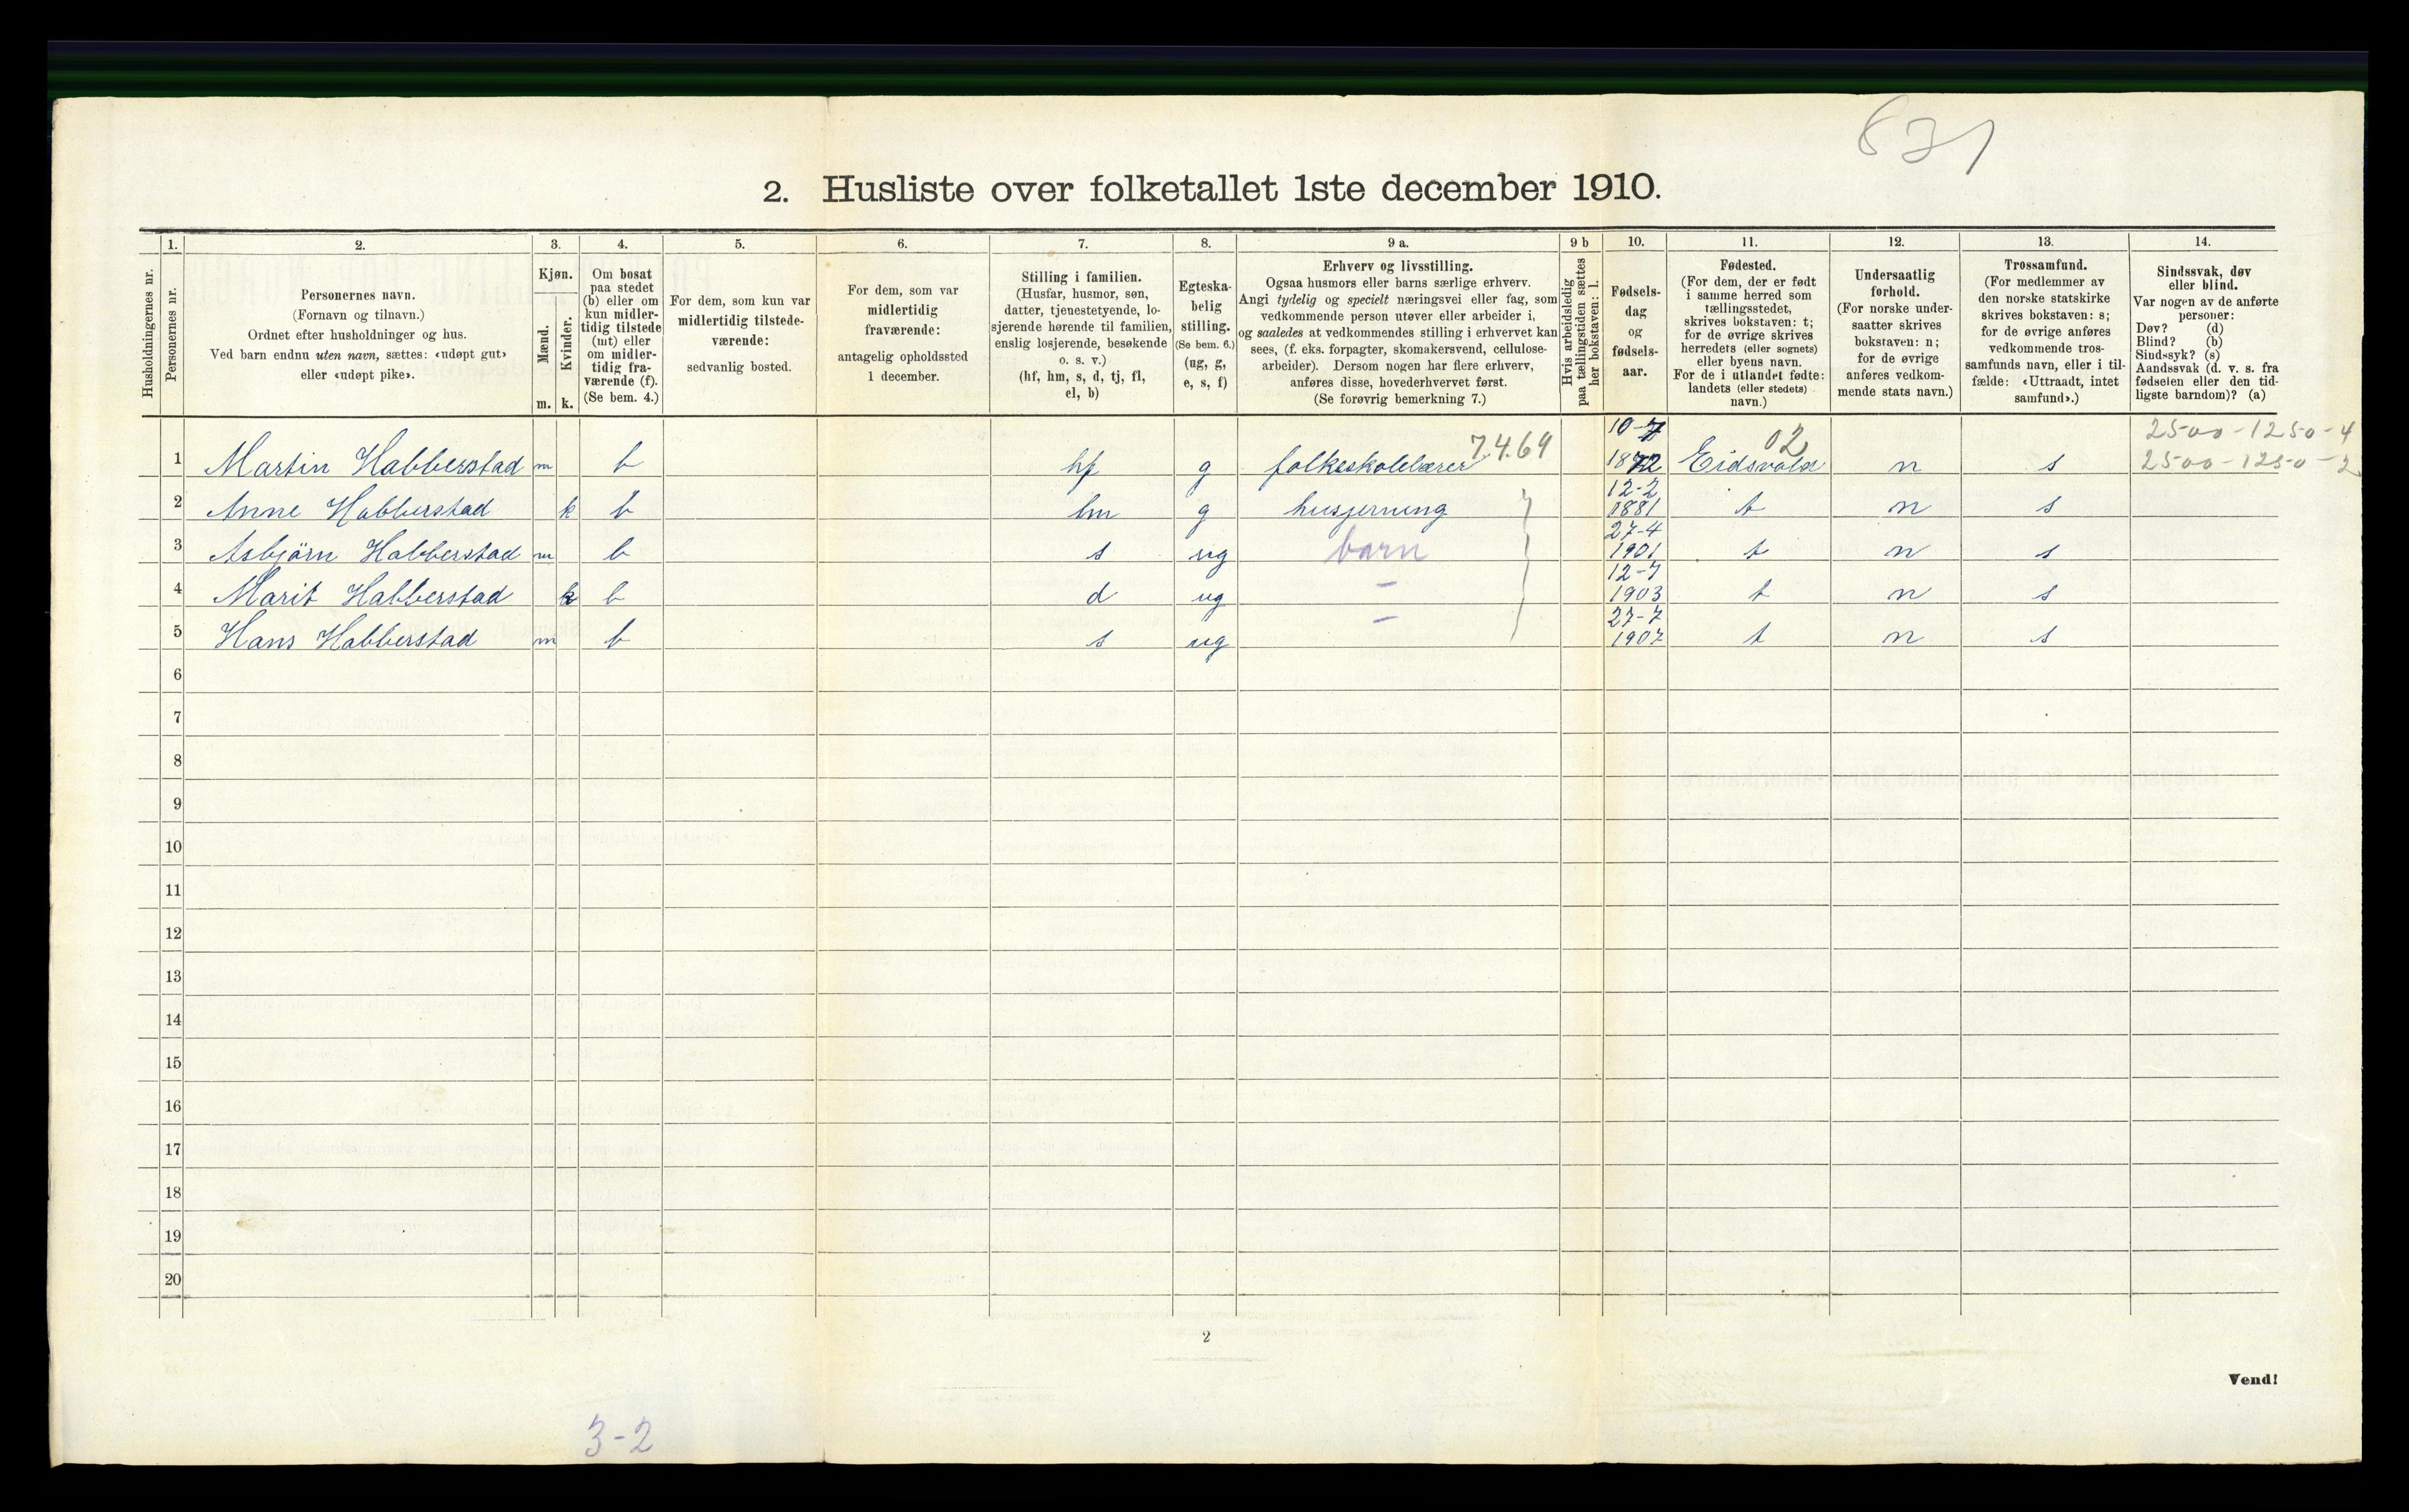 831
2. Husliste over folketallet 1ste december 1910.
Husholdningernes nr.
1. Personernes nr.
2. Personernes navn.
(Fornavn og tilnavn.)
Ordnet efter husholdninger og hus.
Ved barn endnu uten navn, sættes: «udøpt gut»
eller «udøpt pike».
3. Kjøn.
Mænd. Kvinder.
m. k.
4. Om bosat
paa stedet
(b) eller om
kun midler-
tidig tilstede
(mt) eller
om midler-
tidig fra-
værende (f).
(Se bem. 4.)
5. For dem, som kun var
midlertidig tilstede-
værende:
sedvanlig bosted.
6. For dem, som var
midlertidig
fraværende:
antagelig opholdssted
1 december.
7. Stilling i familien.
(Husfar, husmor, søn,
datter, tjenestetyende, lo-
sjerende hørende til familien,
enslig losjerende, besøkende
o. s. v.)
(hf, hm, s, d, tj, fl,
el, b)
8. Egteska-
belig
stilling.
(Se bem. 6.)
(ug, g,
e, s, f)
9 a. Erhverv og livsstilling.
Ogsaa husmors eller barns særlige erhverv.
Angi tydelig og specielt næringsvei eller fag, som
vedkommende person utøver eller arbeider i,
og saaledes at vedkommendes stilling i erhvervet kan
sees, (f. eks. forpagter, skomakersvend, cellulose-
arbeider). Dersom nogen har flere erhverv,
anføres disse, hovederhvervet først.
(Se forøvrig bemerkning 7.)
9 b Hvis arbeidsledig
paa tællingstiden sættes
her bokstaven: l.
10. Fødsels-
dag
og
fødsels-
aar.
11. Fødested.
(For dem, der er født
i samme herred som
tællingsstedet,
skrives bokstaven: t;
for de øvrige skrives
herredets (eller sognets)
eller byens navn.
For de i utlandet fødte:
landets (eller stedets)
navn.)
12. Undersaatlig
forhold.
(For norske under-
saatter skrives
bokstaven: n;
for de øvrige
anføres vedkom-
mende stats navn.)
13. Trossamfund.
(For medlemmer av
den norske statskirke
skrives bokstaven: s;
for de øvrige anføres
vedkommende tros-
samfunds navn, eller i til-
fælde: «Uttraadt, intet
samfund».)
14. Sindssvak, døv
eller blind.
Var nogen av de anførte
personer:
Døv? (d)
Blind? (b)
Sindssyk? (s)
Aandssvak (d. v. s. fra
fødselen eller den tid-
ligste barndom)? (a)
10-7 02 2500-1250-4
1 Martin Habberstad m b hf g folkeskolelærer 7.4.69 1872 Eidsvold n s 2500-1250-2
12-2
2 Anne Habberstad k b hm g husgjerning 1881 t n s
27-4
3 Asbjörn Habberstad m b s ug barn 1901 t n s
12-7
4 Marit Habberstad k b d ug – 1903 t n s
27-7
5 Hans Habberstad m b s ug – 1907 t n s
6
7
8
9
10
11
12
13
14
15
16
17
18
19
20
2
Vend!
3-2